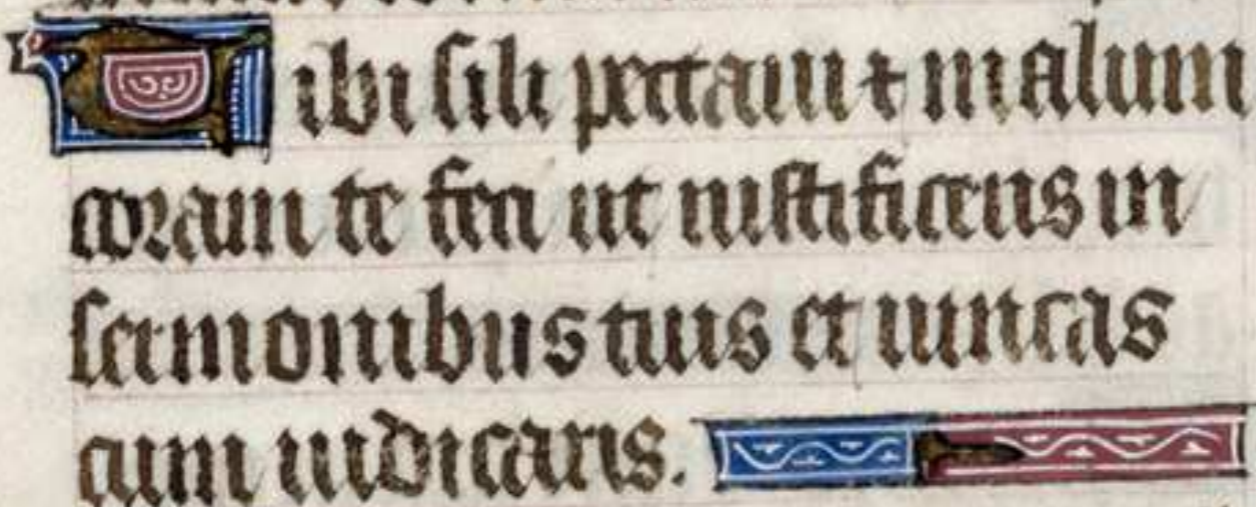 Tibi sili peccaui ⁊ malum
coram te feci ut iustificeris in
sermonibus tuis et uincas
cum iudicaris.